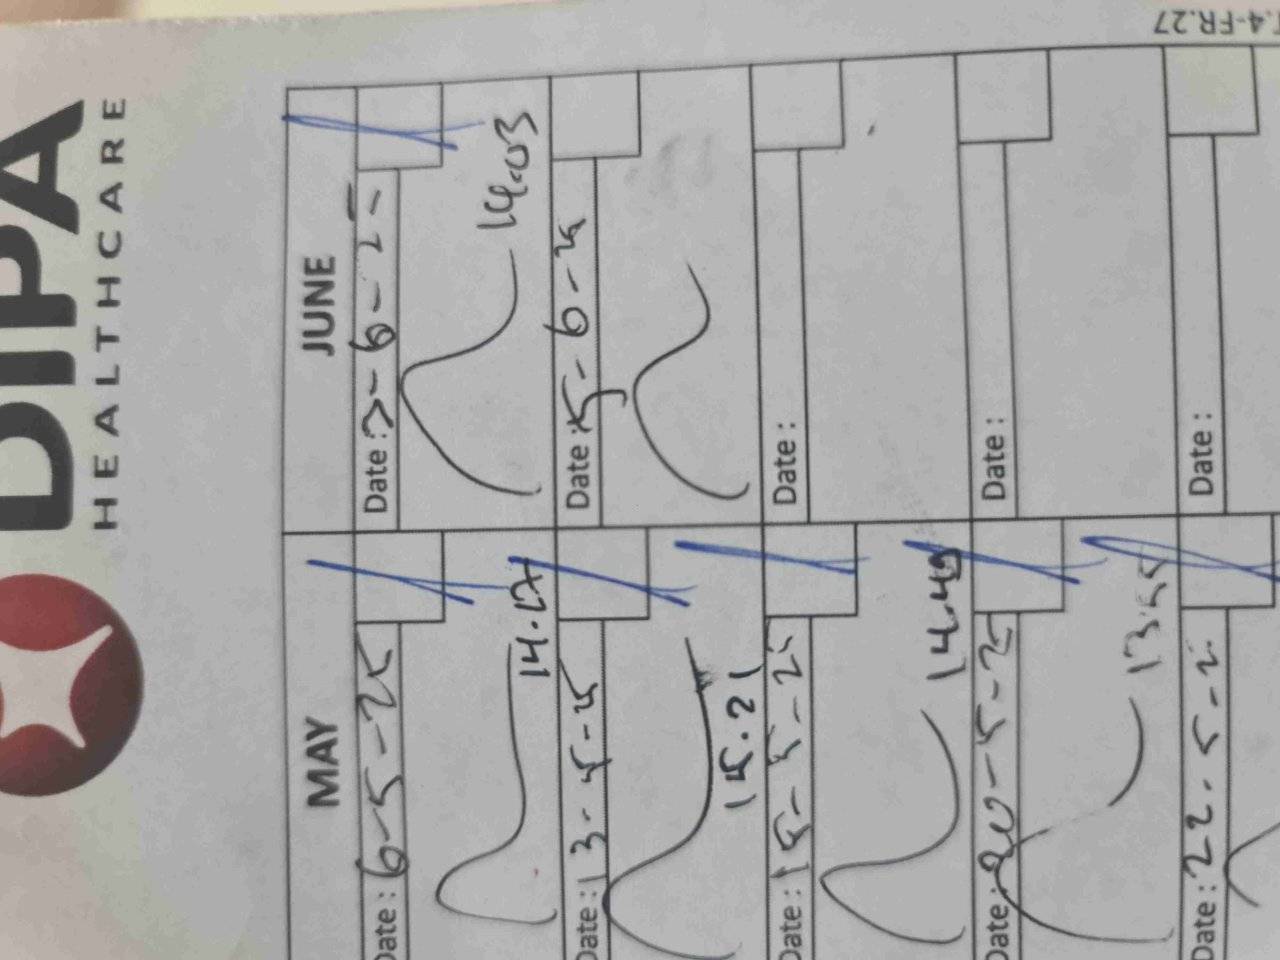 DIPA
HEALTHCARE
.4-FR.27
MAY
Date : 6-5-25
14.17
Date : 13-5-25
15.21
Date : 15-5-25
14.49
Date : 20-5-25
13.55
Date : 22.5-2
JUNE
Date : 3-6-25
14.03
Date : 5-6-25
Date :
Date :
Date :